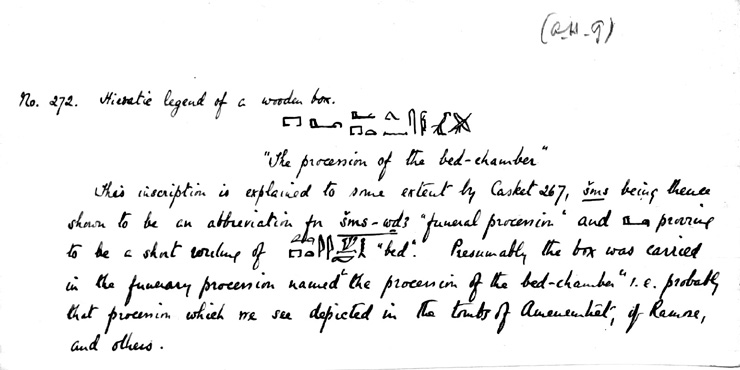 (A.H.G)
No. 272. Hieratic legend of a wooden box.
"The procession of the bed-chamber"
This inscription is explained to some extent by Casket 267, šms being thence
shown to be an abbreviation for šms-wdꜣ "funeral procession" and proving
to be a short writing of "bed". Presumably the box was carried
in the funerary procession named "the procession of the bed-chamber" i.e. probably
that procession which we see depicted in the tombs of Amenemhēt, of Ramose,
and others.